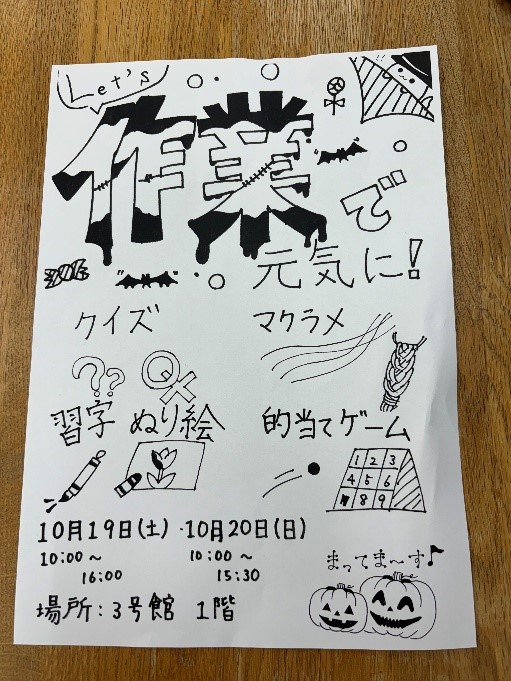 Let's
作業で
元気に!
クイズ
マクラメ
??
○×
習字 ぬり絵
的当てゲーム
1 2 3
4 5 6
7 8 9
10月19日(土)・10月20日(日)
10:00~ 10:00~
16:00 15:30
まってま~す♪
場所:3号館 1階